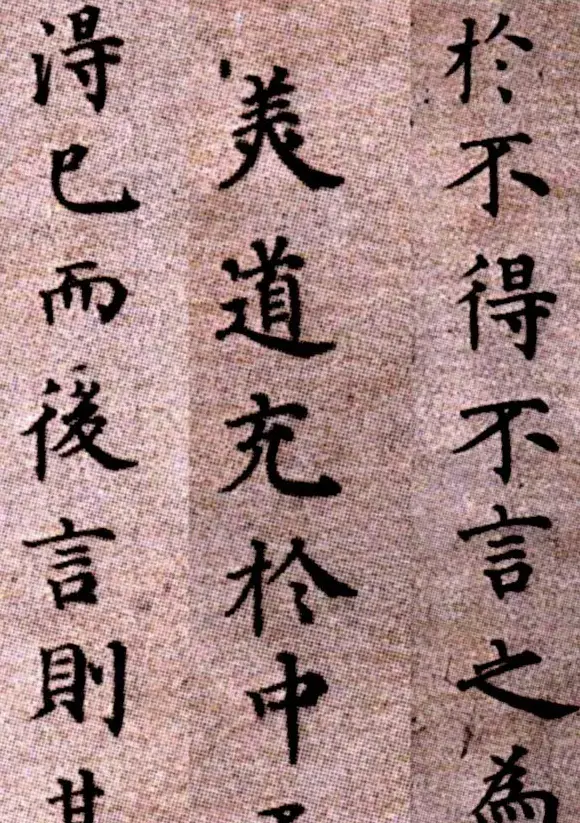 於不得不言之為
美道充於中
得已而後言則其